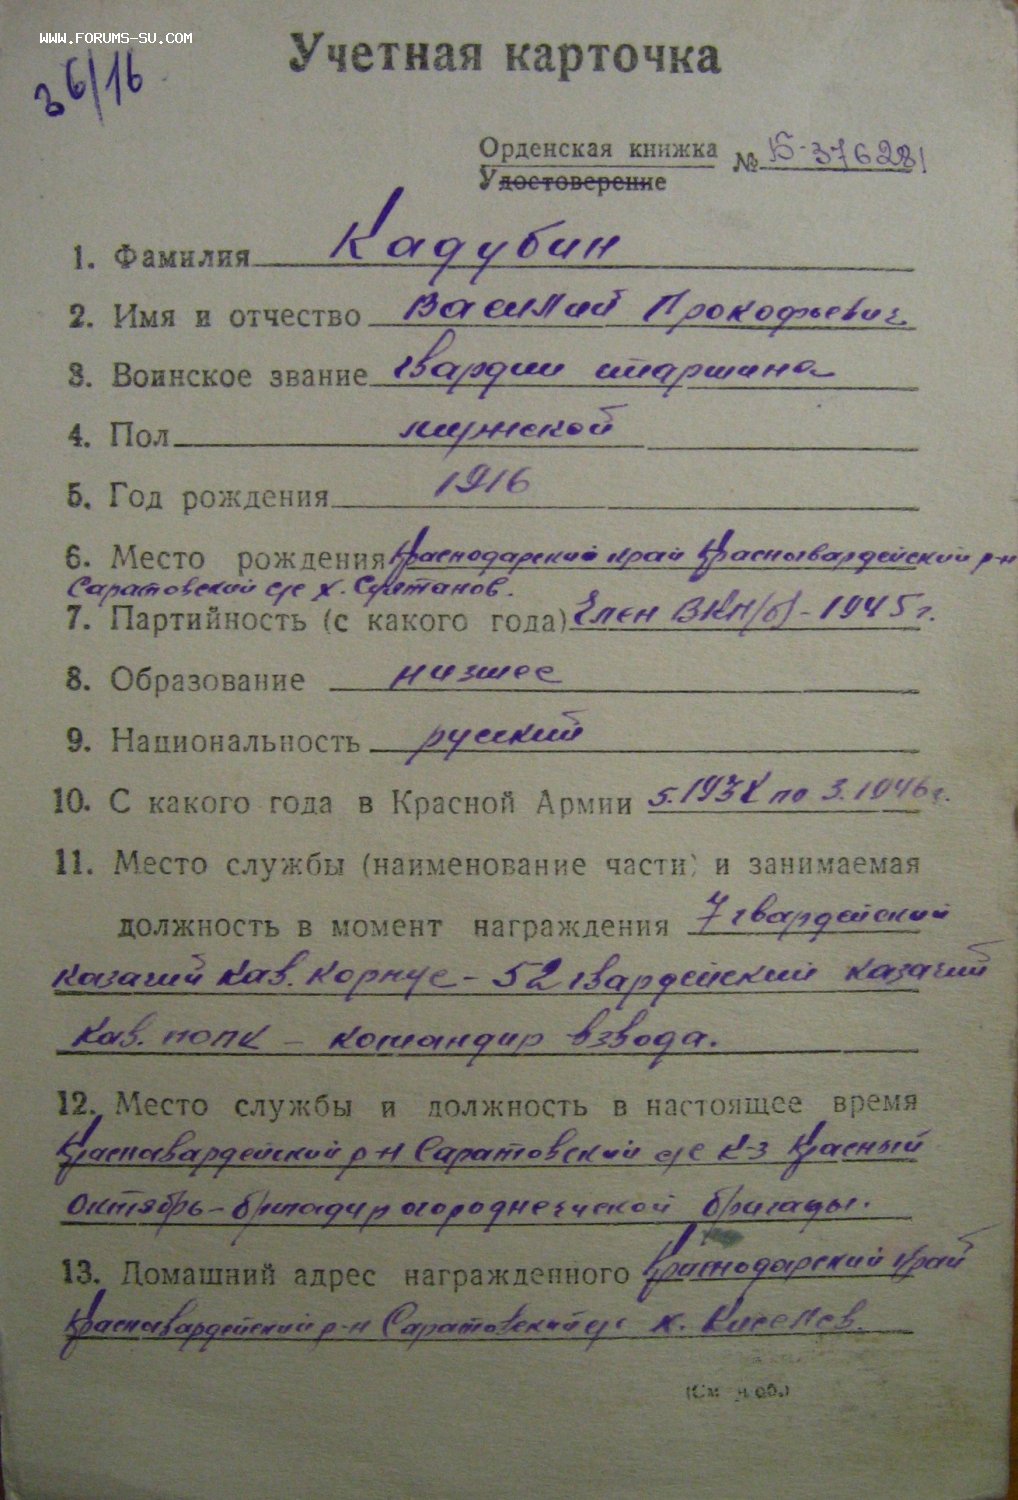 WWW.FORUMS-SU.COM
36/16
Учетная карточка
Орденская книжка
Удостоверение
№ Б-376281
1. Фамилия Кадубин
2. Имя и отчество Василий Прокофьевич
3. Воинское звание гвардии старшина
4. Пол мужской
5. Год рождения 1916
6. Место рождения Краснодарский край Красногвардейский р-н
Саратовский с/с х. Султанов.
7. Партийность (с какого года) Член ВКП/б/ - 1945 г.
8. Образование низшее
9. Национальность русский
10. С какого года в Красной Армии по 3.1946 г.
11. Место службы (наименование части) и занимаемая
должность в момент награждения 7 гвардейский
казачий кав. корпус - 52 гвардейский казачий
кав. полк - командир взвода.
12. Место службы и должность в настоящее время
Красногвардейский р-н Саратовский с/с к-з Красный
Октябрь - бригадир огороднической бригады.
13. Домашний адрес награжденного Краснодарский край
Красногвардейский р-н Саратовский с/с х. Киселев.
(См. н. об.)